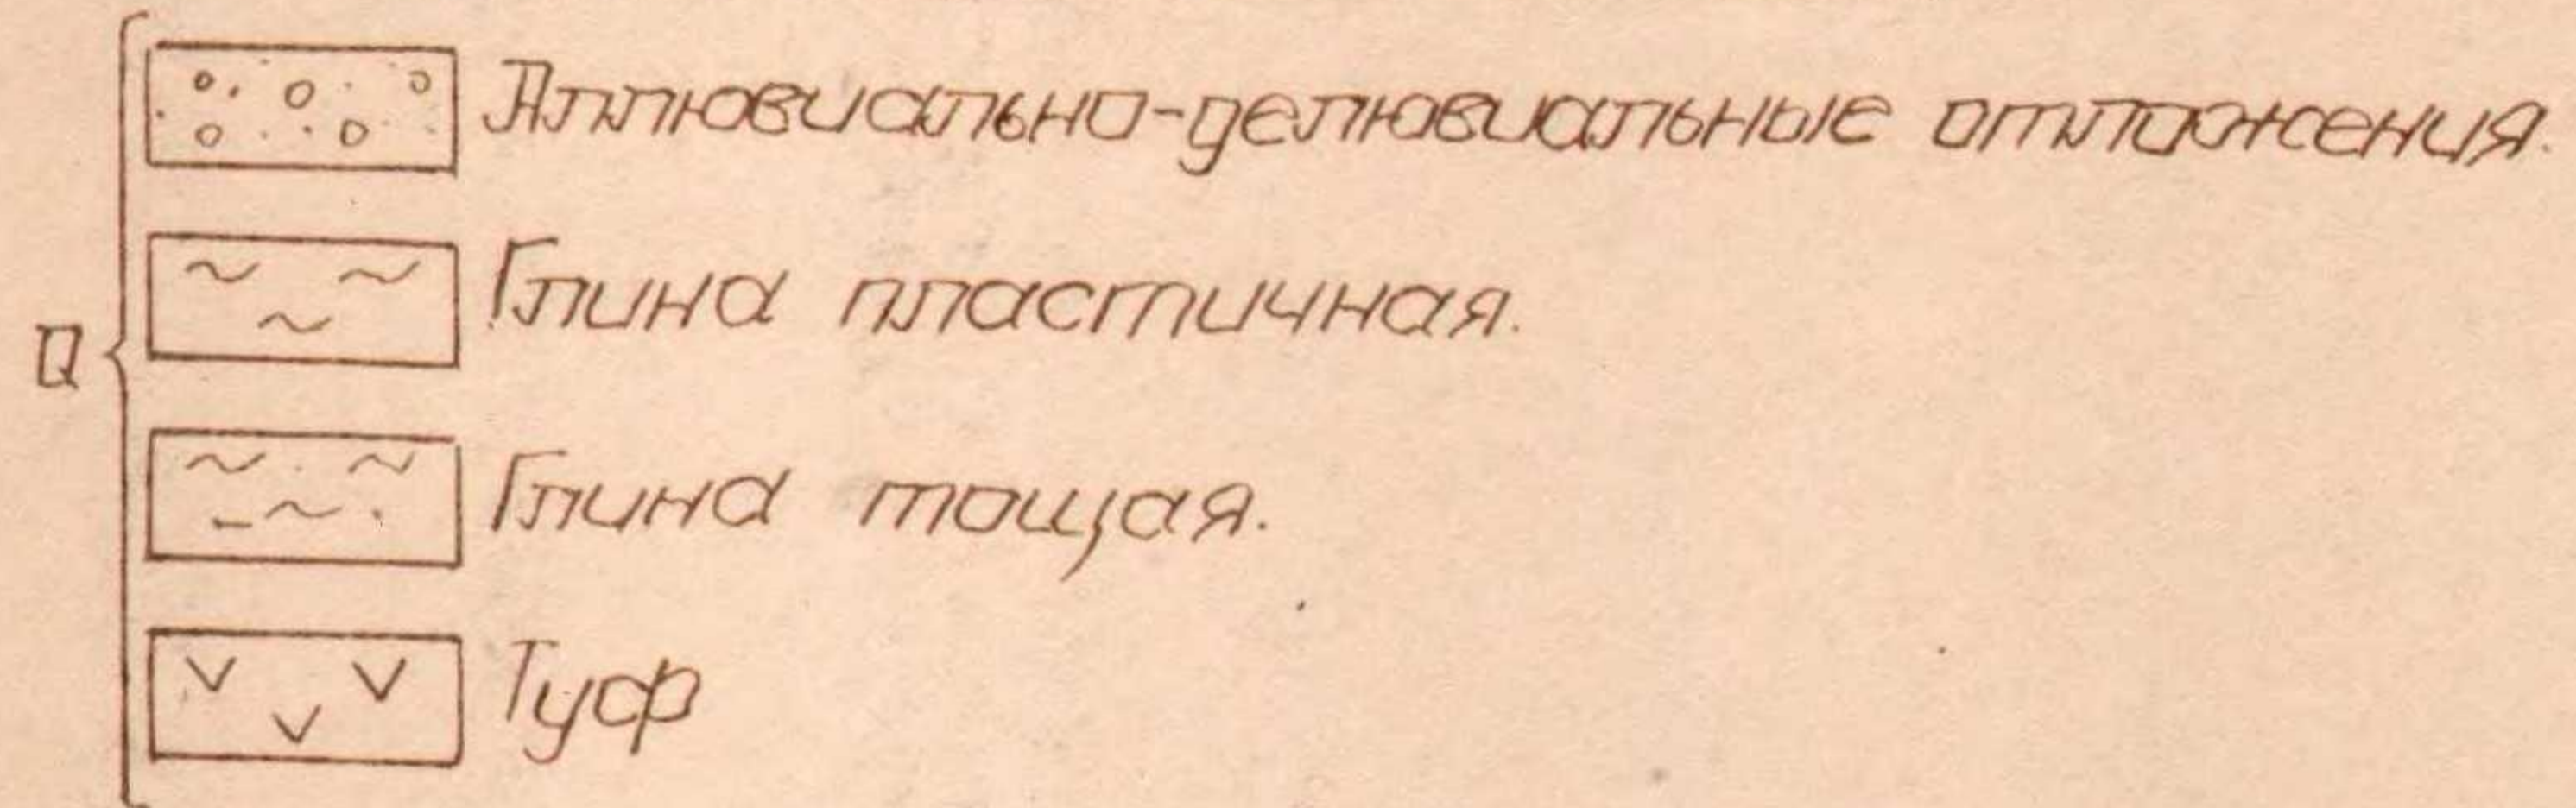 Аллювиально-делювиальные отложения.
Глина пластичная.
Q
Глина тощая.
Туф